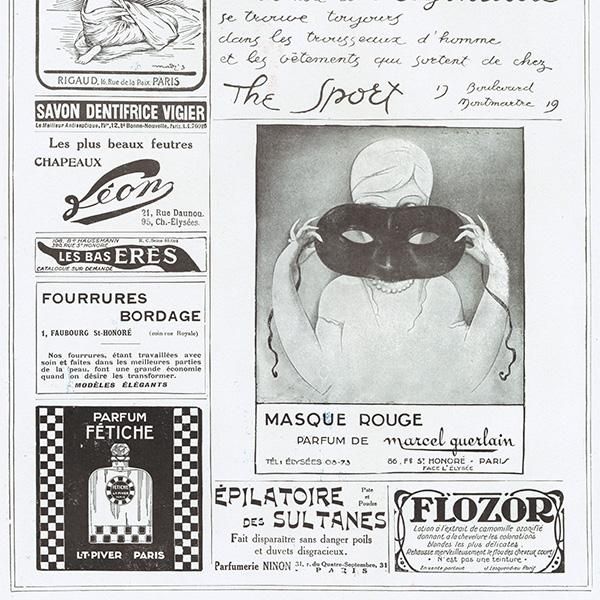 se trouve toujours
dans les trousseaux d'homme
et les vêtements qui sortent de chez
The Sport 17 Boulevard
Montmartre 19
RIGAUD, 16, Rue de la Paix PARIS
SAVON DENTIFRICE VIGIER
Le Meilleur Antiseptique, 12, Bd Bonne-Nouvelle, Paris.
Les plus beaux feutres
CHAPEAUX
Léon
21, Rue Daunou.
95, Ch.-Élysées.
108, Bd HAUSSMANN
390, RUE St HONORÉ
LES BAS ERÈS
CATALOGUE SUR DEMANDE
FOURRURES
BORDAGE
1, FAUBOURG St-HONORÉ (coin rue Royale)
Nos fourrures, étant travaillées avec
soin et faites dans les meilleures parties
de la peau, font une grande économie
quand on désire les transformer.
MODÈLES ÉLÉGANTS
PARFUM
FÉTICHE
FÉTICHE
L.T. PIVER
PARIS
L.T. PIVER PARIS
MASQUE ROUGE
PARFUM DE marcel guerlain
TÉL: ÉLYSÉES 08-73 86, Fg St HONORÉ - PARIS
FACE L'ÉLYSÉE
ÉPILATOIRE Pate
et
Poudre
DES SULTANES
Fait disparaître sans danger poils
et duvets disgracieux.
Parfumerie NINON 31, r. du Quatre-Septembre, 31
- PARIS -
FLOZOR
Lotion à l'extrait de camomille ozonifié
donnant à la chevelure les colorations
blondes les plus délicates.
Rehausse merveilleusement le flou des cheveux courts
• N'est pas une teinture •
En vente partout J. Lesquendieu Paris